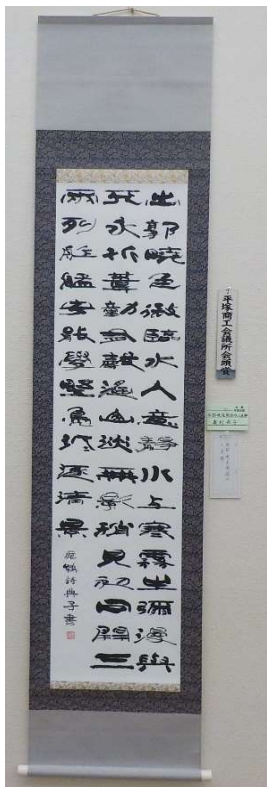 出郭曉色微臨水人意靜水上寒霧生彌漫與
天永折葦動有聲遙山淡無影稍見初日開三
兩列舴艋安能學野鳧泛泛逐清景
宛陵詩典子書
平塚商工会議所会頭賞